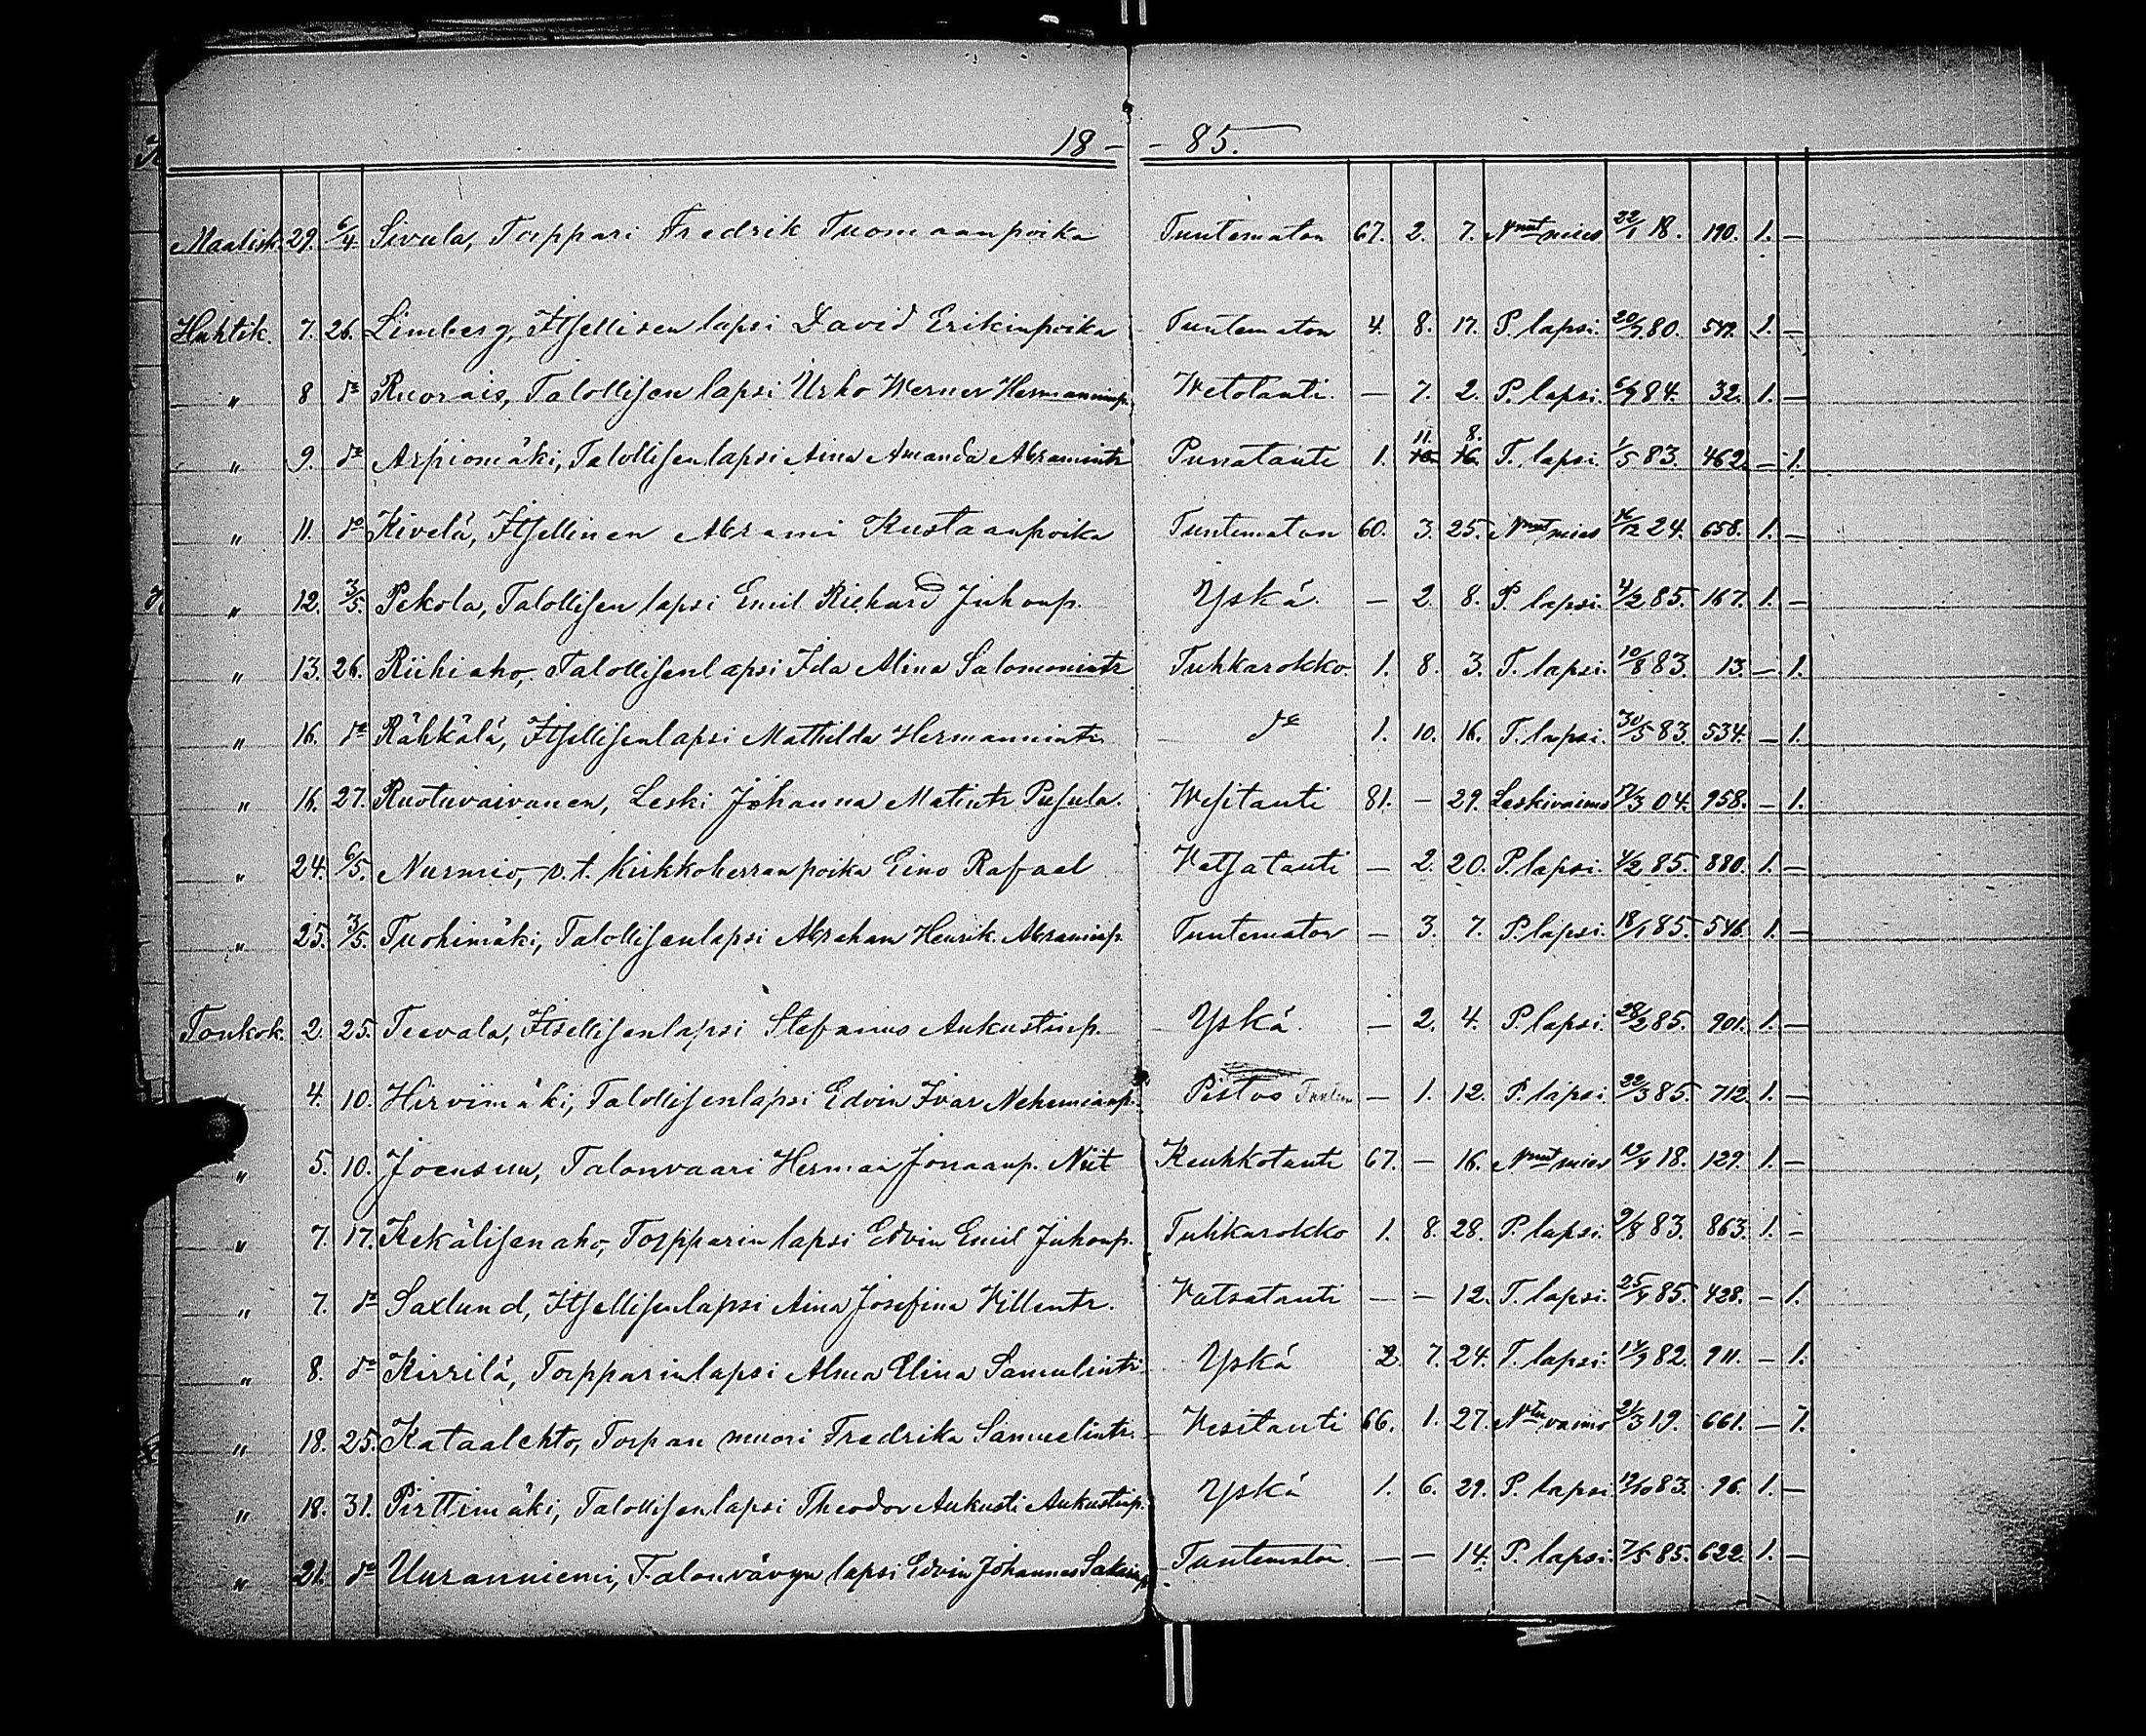 18 - - 85.
Maalisk. 29. 6/4 Sivula, Torppari Fredrik Tuomaanpoika Tuntematon 67. 2. 7. Nnut mies 22/1 18. 190. 1. —
Huhtik. 7. 26. Limberg, Itsellisen lapsi David Erikinpoika Tuntematon 4. 8. 17. P. lapsi. 20/7 80. 1. —
" 8 do Ruorais, Talollisen lapsi Urho Werner Hermanninp. Wetotauti. — 7. 2. P. lapsi. 6/9 84. 32. 1. —
" 9. do Arpiomäki, Talollisen lapsi Aina Amanda Abramintr Punatauti 1. 11. 8. T. lapsi. 1/5 83. 462. — 1.
" 11. do Kivelä, Itsellinen Abrami Kustaanpoika Tuntematon 60. 3. 25. Nnut mies 16/12 24. 658. 1. —
" 12. 3/5. Pekola, Talollisen lapsi Emil Richard Juhonp. Yskä. — 2. 8. P. lapsi. 4/2 85. 167. 1. —
" 13. 26. Riihiaho, Talollisenlapsi Ida Alina Salomonintr Tuhkarokko. 1. 8. 3. T. lapsi. 10/8 83. 13. — 1.
" 16. do Rähkälä, Itsellisenlapsi Mathilda Hermannintr do 1. 10. 16. T. lapsi. 30/5 83. 534. — 1.
" 16. 27. Ruotuvaivanen, Leski Johanna Matintr Pusula. Wesitauti 81. — 29. Leskivaimo 17/3 04. 958. — 1.
" 24. 6/5. Nurmio, v.t. kirkkoherran poika Eino Rafael Vatsatauti — 2. 20. P. lapsi. 4/2 85. 880. 1. —
" 25. 3/5. Tuohimäki, Talollisenlapsi Abraham Henrik Abraminp. Tuntematon — 3. 7. P. lapsi. 18/1 85. 546. 1. —
Toukok. 2. 25. Teevala, Itsellisenlapsi Stefanus Aukustinp. Yskä. — 2. 4. P. lapsi. 28/2 85. 901. 1. —
4. 10. Hirvimäki, Talollisenlapsi Edvin Ivar Nehemianp. Pistos — 1. 12. P. lapsi. 22/3 85. 712. 1. —
" 5. 10. Joensuu, Talonvaari Herman Jonaanp. Niit Keuhkotauti 67. — 16. Nnut mies 18. 129. 1. —
" 7. 17. Kekälisenaho, Torpparin lapsi Edvin Emil Juhonp. Tuhkarokko 1. 8. 28. P. lapsi. 9/8 83. 863. 1. —
" 7. do Saxlund, Itsellisenlapsi Aina Josefina Villentr. Vatsatauti — — 12. T. lapsi. 25/4 85. 428. — 1.
" 8. do Kirrilä, Torpparinlapsi Alma Elina Samulintr. Yskä 2. 7. 24. T. lapsi. 14/9 82. 911. — 1.
" 18. 25. Kataalehto, Torpan muori Fredrika Samuelintr. Vesitauti 66. 1. 27. Ntu vaimo 21/3 19. 661. — 1.
" 18. 31. Pirttimäki, Talollisenlapsi Theodor Aukusti Aukustinp. Yskä 1. 6. 29. P. lapsi. 19/10 83. 96. 1. —
" 21. do Uuranniemi, Talonvävyn lapsi Edvin Johannes Sakarinp Tuntematon. — — 14. P. lapsi. 7/5 85. 622. 1. —